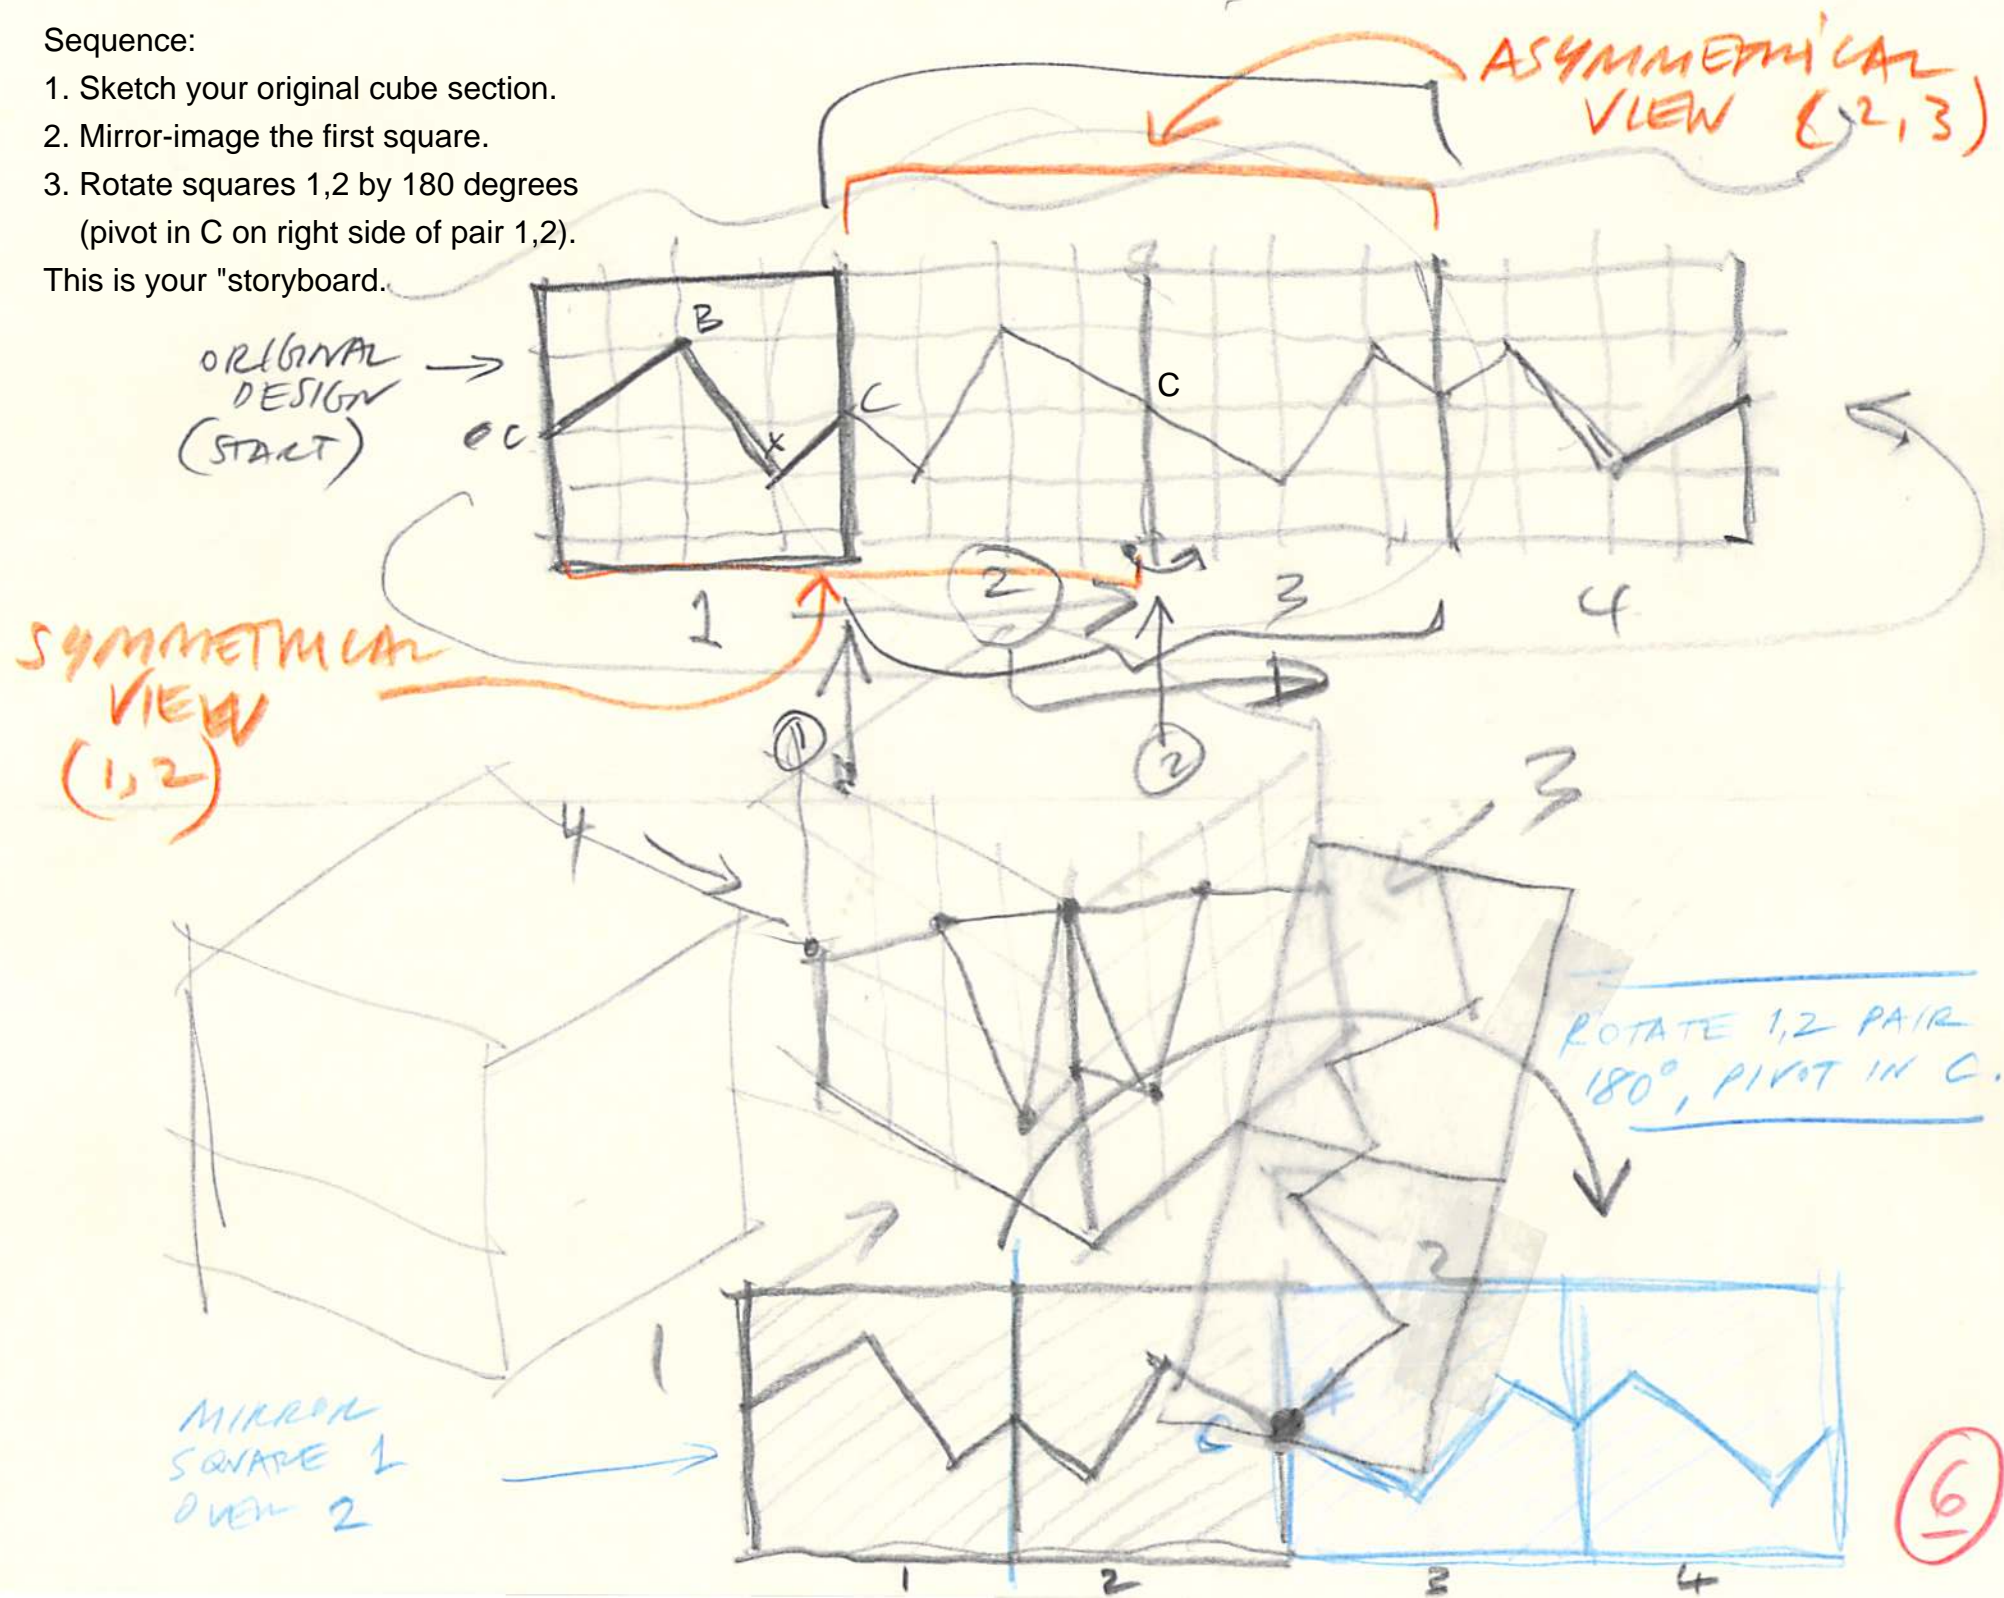 Sequence:
1. Sketch your original cube section.
2. Mirror-image the first square.
3. Rotate squares 1,2 by 180 degrees
(pivot in C on right side of pair 1,2).
This is your "storyboard.
ASYMMETRICAL
VIEW (2,3)
ORIGINAL
DESIGN
(START)
C
B
X
C
C
1
2
3
4
SYMMETRICAL
VIEW
(1,2)
1
2
4
3
ROTATE 1,2 PAIR
180°, PIVOT IN C.
2
1
MIRROR
SQUARE 1
OVER 2
C
6
1
2
3
4